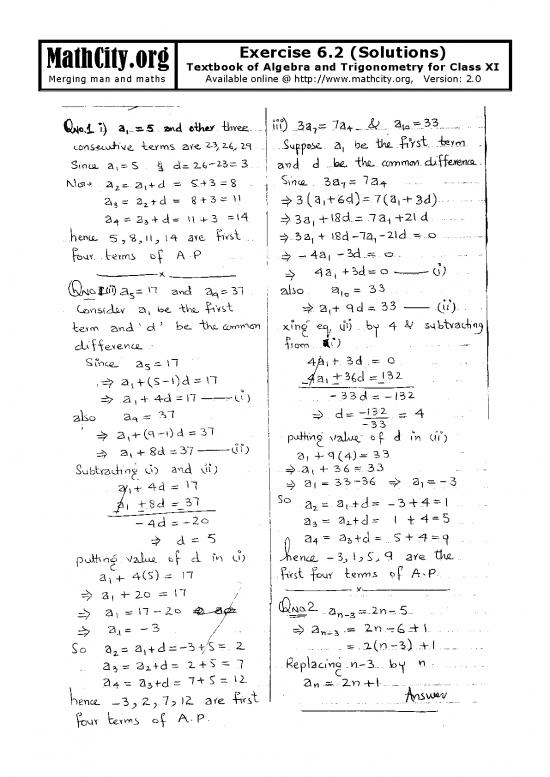 MathCity.org
Merging man and maths
Exercise 6.2 (Solutions)
Textbook of Algebra and Trigonometry for Class XI
Available online @ http://www.mathcity.org, Version: 2.0
QNo.1 i) a₁ = 5 and other three
consecutive terms are 23, 26, 29
Since a₁ = 5 & d = 26-23 = 3
Now a₂ = a₁+d = 5+3 = 8
a₃ = a₂+d = 8+3 = 11
a₄ = a₃+d = 11+3 = 14
hence 5, 8, 11, 14 are first
four terms of A.P
x
QNo 1(ii) a₅ = 17 and a₉ = 37
Consider a₁ be the first
term and 'd' be the common
difference.
Since a₅ = 17
⇒ a₁+(5-1)d = 17
⇒ a₁ + 4d = 17 —(i)
also a₉ = 37
⇒ a₁+(9-1)d = 37
⇒ a₁ + 8d = 37 —(ii)
Subtracting (i) and (ii)
a₁ + 4d = 17
a₁ ± 8d = 37
-4d = -20
⇒ d = 5
putting value of d in (i)
a₁ + 4(5) = 17
⇒ a₁ + 20 = 17
⇒ a₁ = 17-20
⇒ a₁ = -3
So a₂ = a₁+d = -3+5 = 2
a₃ = a₂+d = 2+5 = 7
a₄ = a₃+d = 7+5 = 12
hence -3, 2, 7, 12 are first
four terms of A.P.
iii) 3a₇ = 7a₄ & a₁₀ = 33
Suppose a₁ be the first term
and d be the common difference
Since 3a₇ = 7a₄
⇒ 3(a₁+6d) = 7(a₁+3d)
⇒ 3a₁ + 18d = 7a₁ + 21d
⇒ 3a₁ + 18d - 7a₁ - 21d = 0
⇒ -4a₁ - 3d = 0
⇒ 4a₁ + 3d = 0 —(i)
also a₁₀ = 33
⇒ a₁ + 9d = 33 —(ii)
xing eq. (ii) by 4 & subtracting
from (i)
4a₁ + 3d = 0
4a₁ ± 36d = 132
-33d = -132
⇒ d = -132/-33 = 4
putting value of d in (ii)
a₁ + 9(4) = 33
⇒ a₁ + 36 = 33
⇒ a₁ = 33-36 ⇒ a₁ = -3
So a₂ = a₁+d = -3+4 = 1
a₃ = a₂+d = 1+4 = 5
a₄ = a₃+d = 5+4 = 9
hence -3, 1, 5, 9 are the
first four terms of A.P.
x
QNo 2 aₙ₋₃ = 2n-5
⇒ aₙ₋₃ = 2n-6+1
= 2(n-3)+1
Replacing n-3 by n
aₙ = 2n+1
Answer